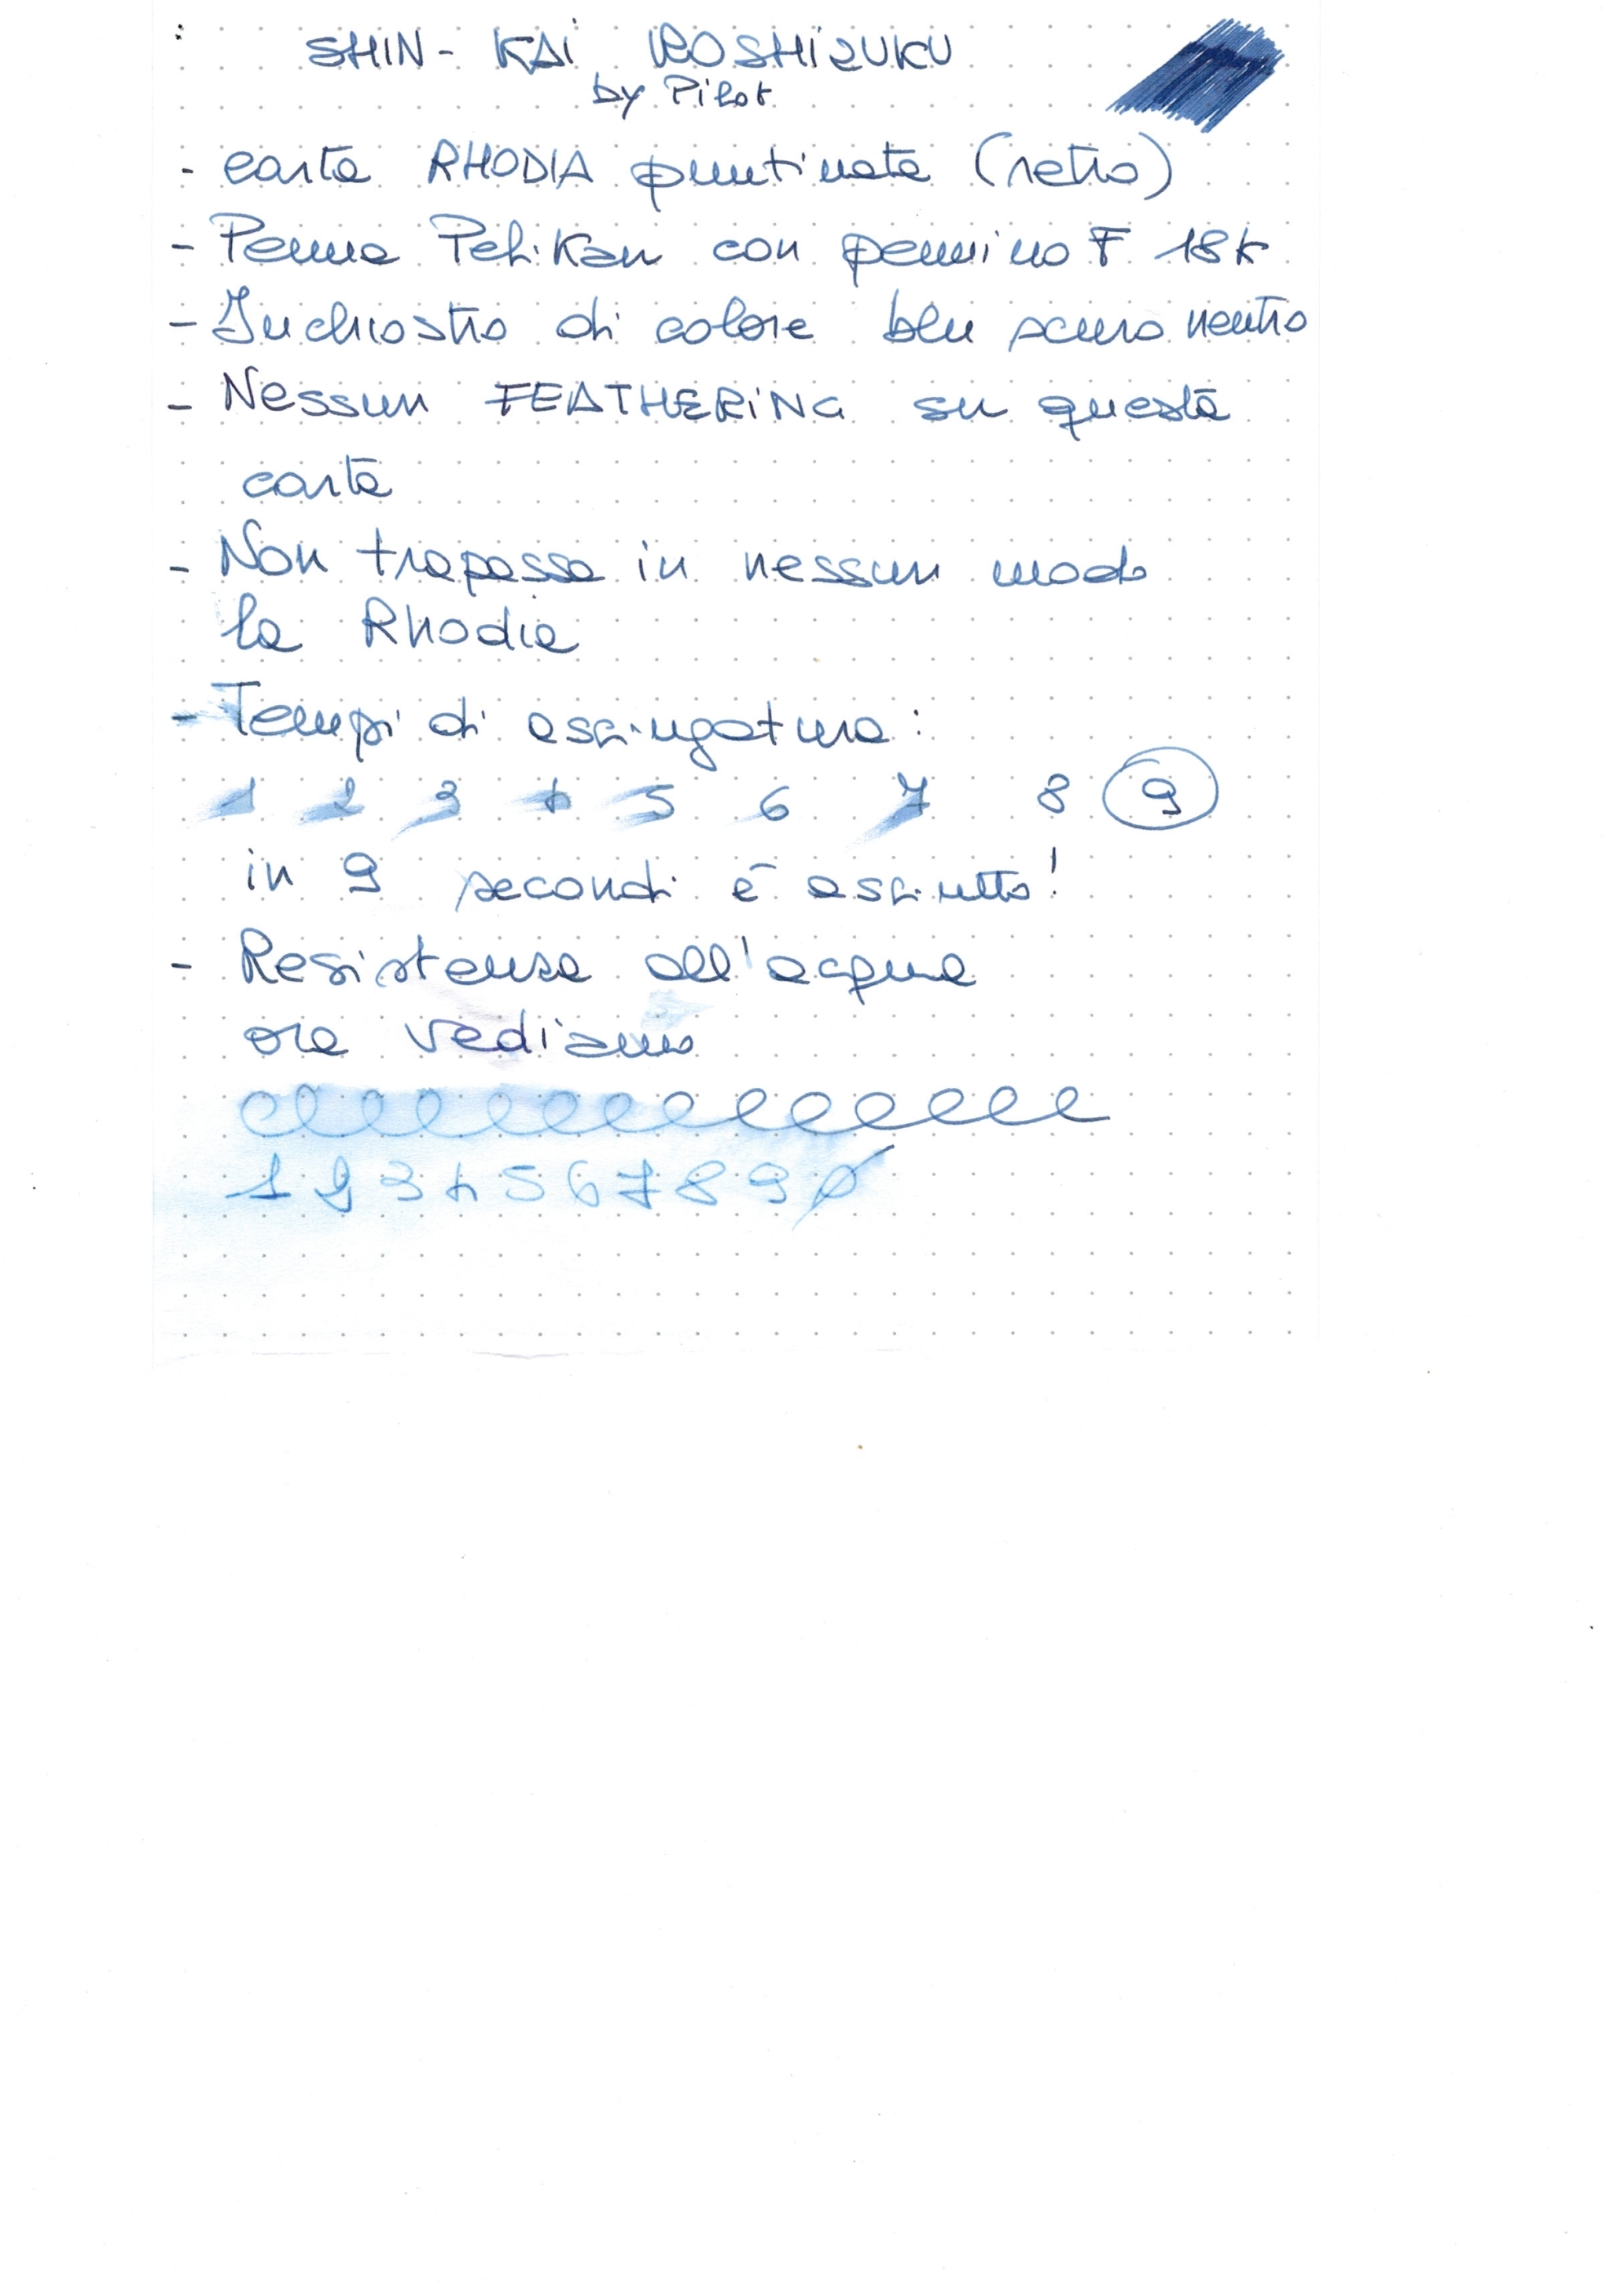 SHIN-KAI IROSHIZUKU
by Pilot
- carta RHODIA puntinata (retro)
- Penna Pelikan con pennino F 18k
- Inchiostro di colore blu scuro neutro
- Nessun FEATHERING su questa
carta
- Non trapassa in nessun modo
la Rhodia
- Tempi di asciugatura:
1 2 3 4 5 6 7 8 9
in 9 secondi è asciutto!
- Resistenza all'acqua
ora vediamo
1 2 3 4 5 6 7 8 9 0